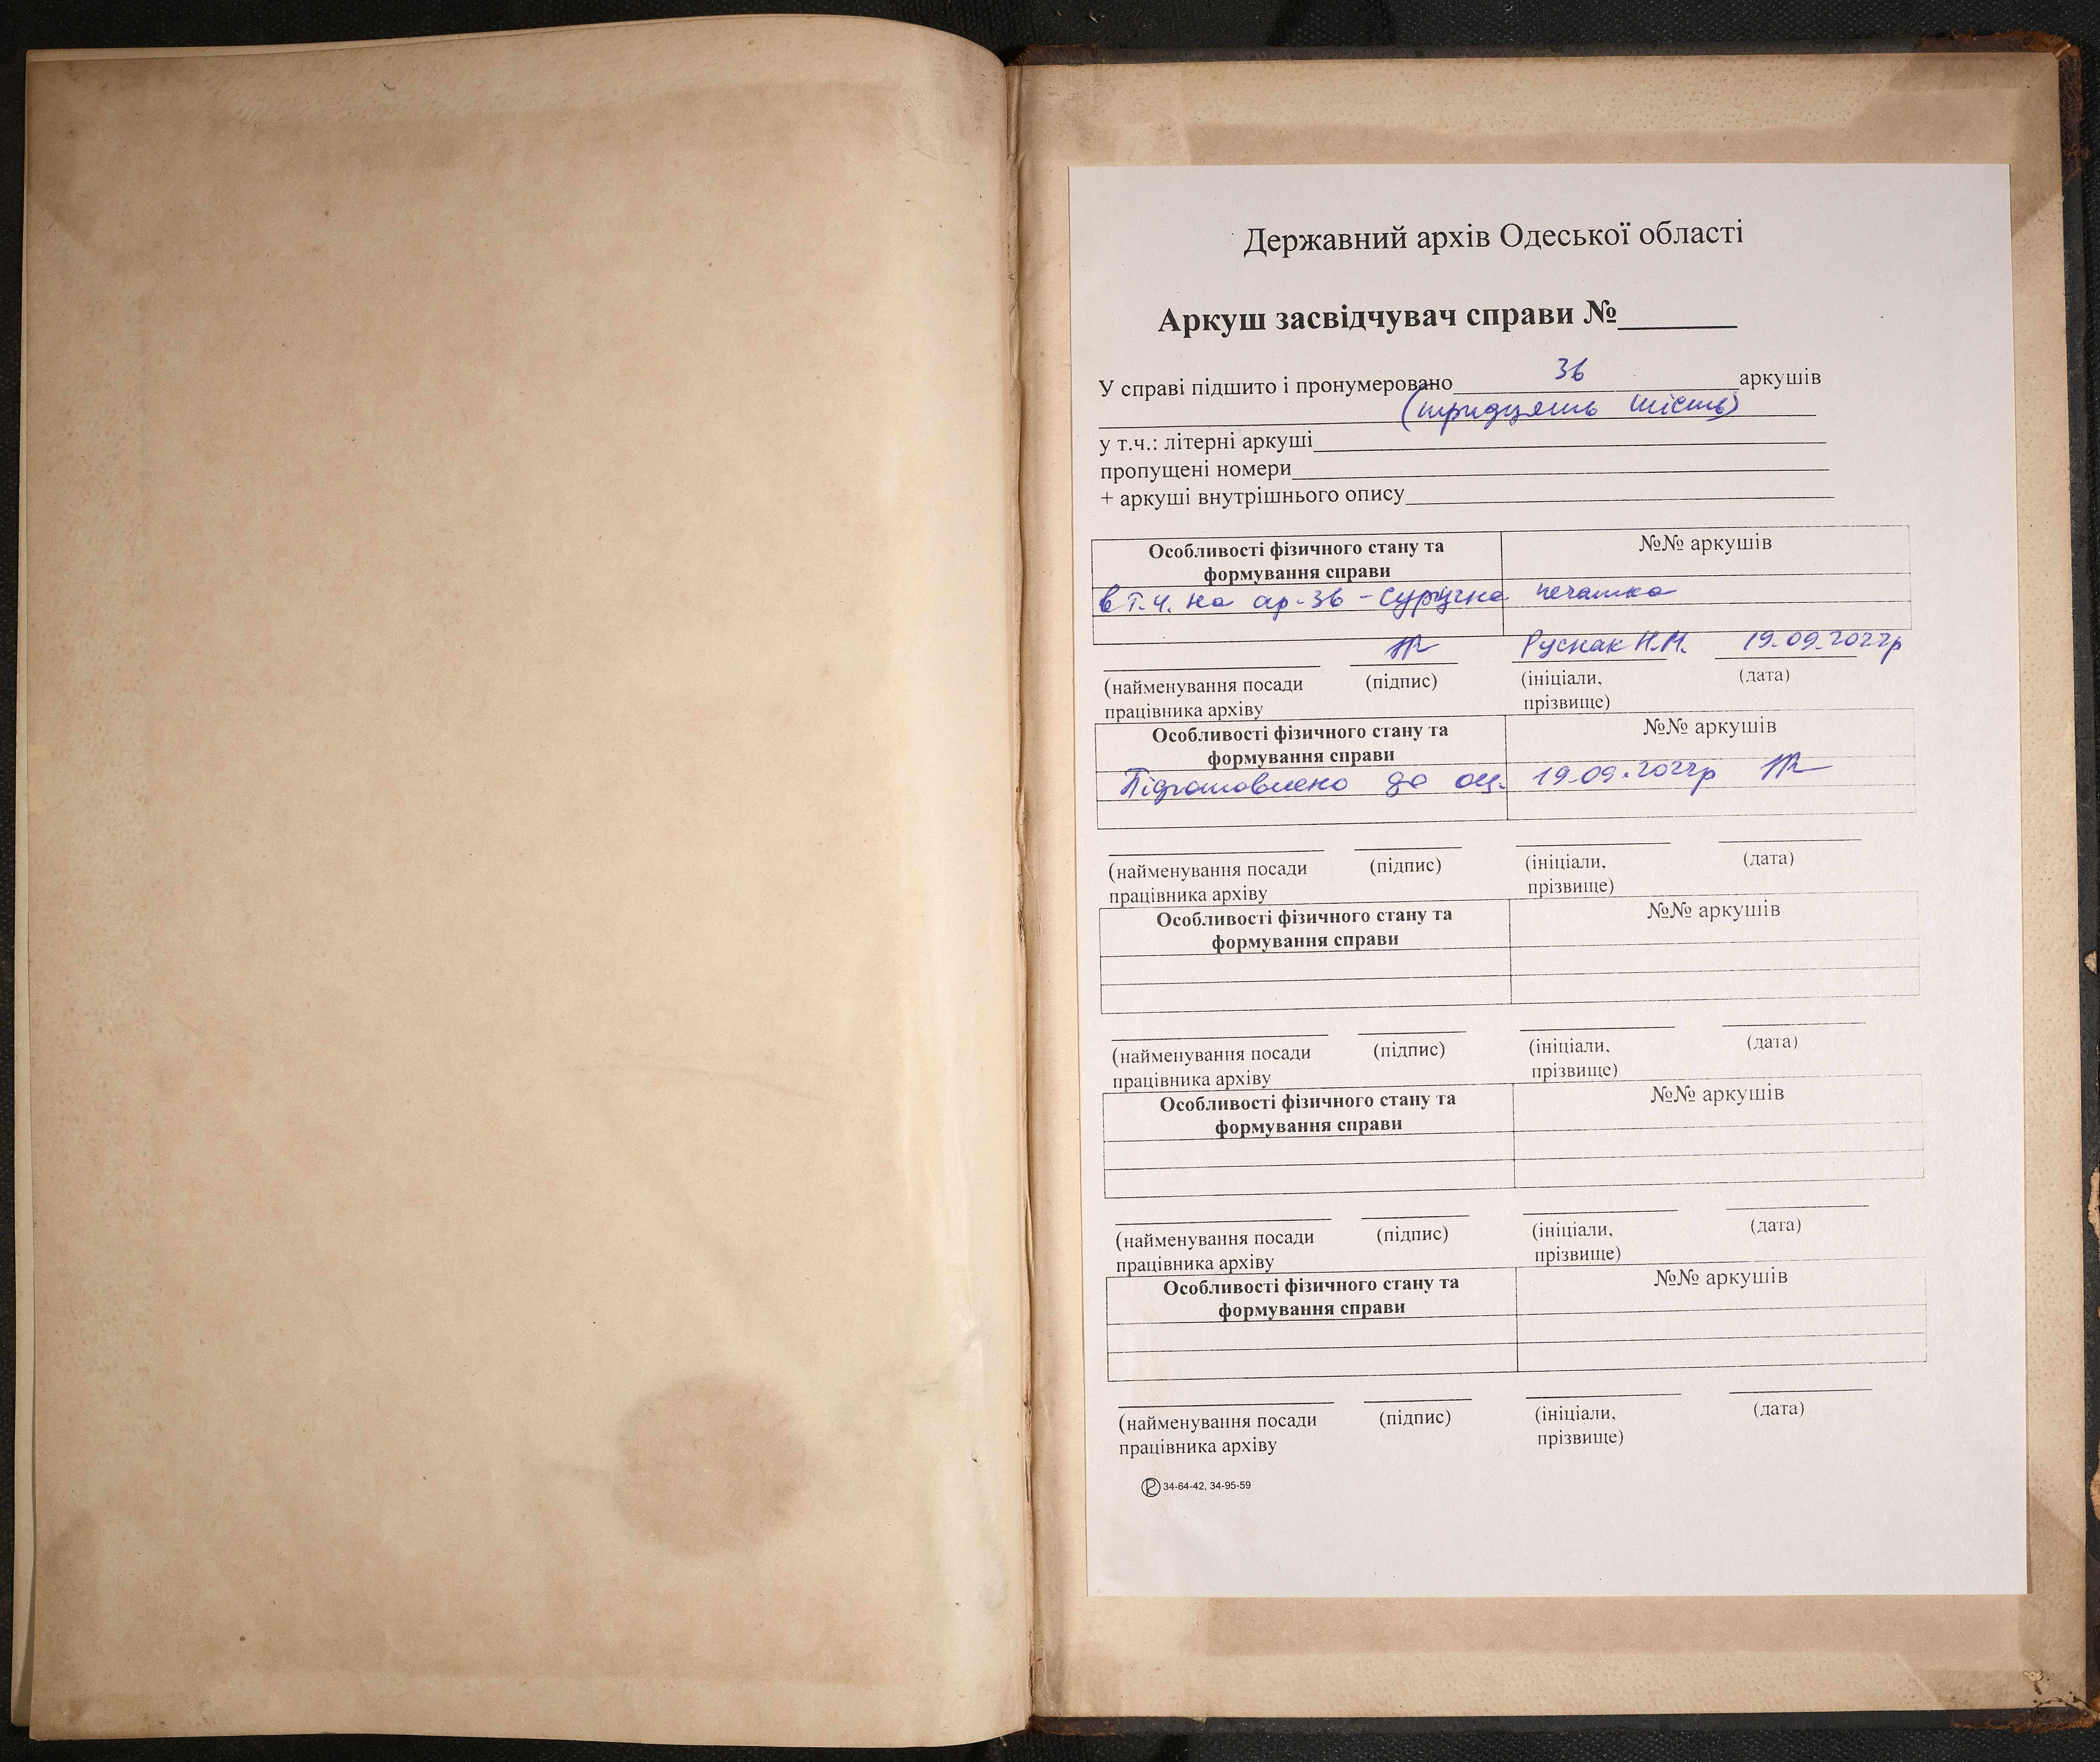 Державний архів Одеської області
Аркуш засвідчувач справи №______
У справі підшито і пронумеровано 36 аркушів
(тридцять шість)
у т.ч.: літерні аркуші
пропущені номери
+ аркуші внутрішнього опису
Особливості фізичного стану та №№ аркушів
формування справи
в т.ч. на ар. 36 - Сургучна печатка
Руснак Н.М. 19.09.2022р
(найменування посади (підпис) (ініціали, (дата)
працівника архіву прізвище)
Особливості фізичного стану та №№ аркушів
формування справи
Підготовлено до оц. 19.09.2022р
(найменування посади (підпис) (ініціали, (дата)
працівника архіву прізвище)
Особливості фізичного стану та №№ аркушів
формування справи
(найменування посади (підпис) (ініціали, (дата)
працівника архіву прізвище)
Особливості фізичного стану та №№ аркушів
формування справи
(найменування посади (підпис) (ініціали, (дата)
працівника архіву прізвище)
Особливості фізичного стану та №№ аркушів
формування справи
(найменування посади (підпис) (ініціали, (дата)
працівника архіву прізвище)
34-64-42, 34-95-59